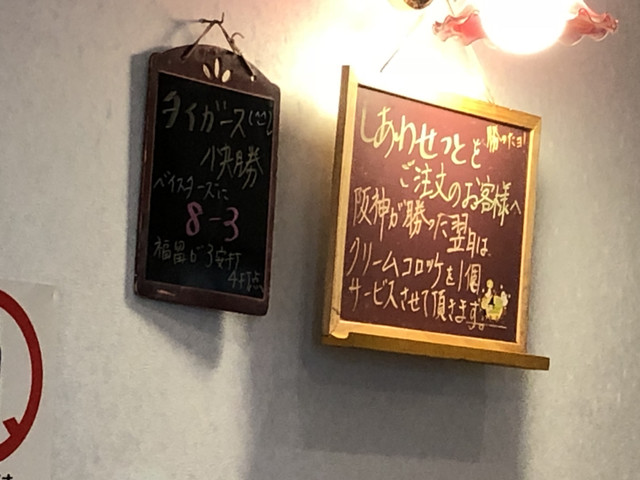 タイガース
快勝
ベイスターズに
8-3
福留が3安打
4打点
勝ったヨ!
しあわせっとを
ご注文のお客様へ
阪神が勝った翌日は
クリームコロッケを1個
サービスさせて頂きます。